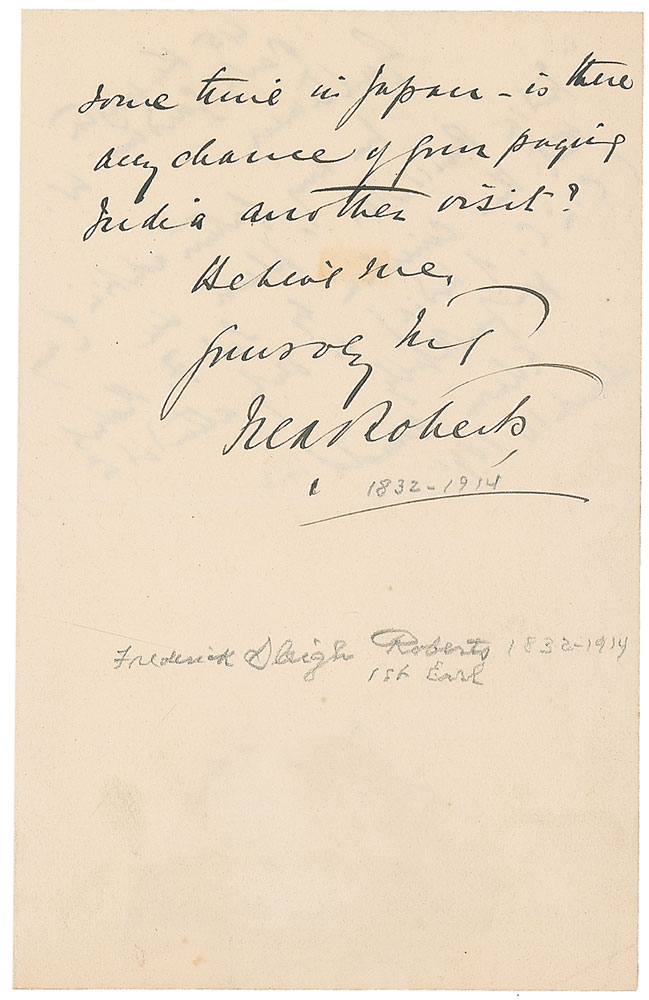 some time in Japan - is there
any chance of your paying
India another visit?
Believe me,
Yours very truly
Fred Roberts
1832-1914
Frederick Sleigh Roberts 1832-1914
1st Earl